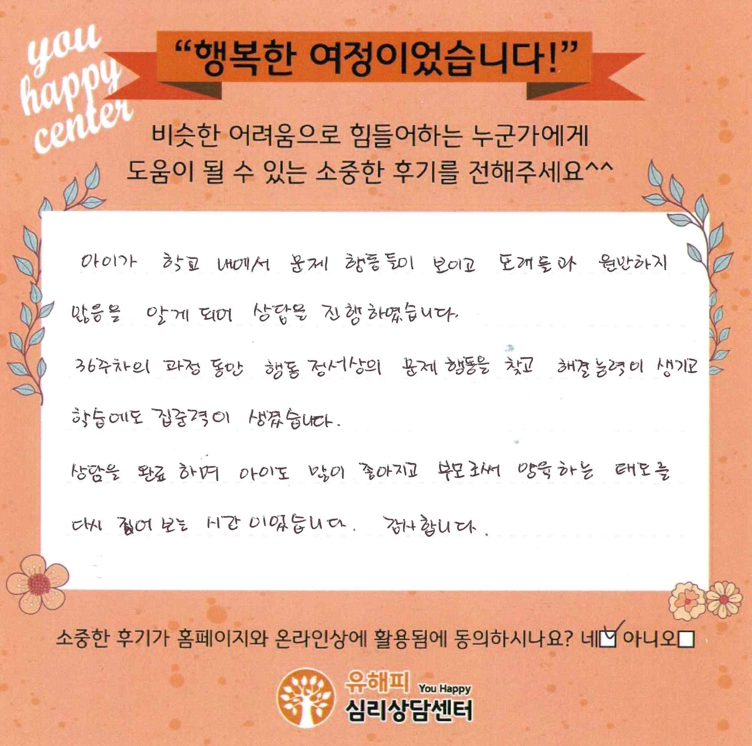 you
happy
center
“행복한 여정이었습니다!”
비슷한 어려움으로 힘들어하는 누군가에게
도움이 될 수 있는 소중한 후기를 전해주세요^^
아이가 학교 내에서 문제 행동들이 보이고 또래들과 원만하지
않음을 알게 되어 상담을 진행하였습니다.
36주차의 과정 동안 행동 정서상의 문제 행동을 찾고 해결능력이 생기고
학습에도 집중력이 생겼습니다.
상담을 완료하며 아이도 많이 좋아지고 부모로써 양육하는 태도를
다시 짚어 보는 시간이었습니다. 감사합니다.
소중한 후기가 홈페이지와 온라인상에 활용됨에 동의하시나요? 네☑ 아니오☐
유해피 You Happy
심리상담센터